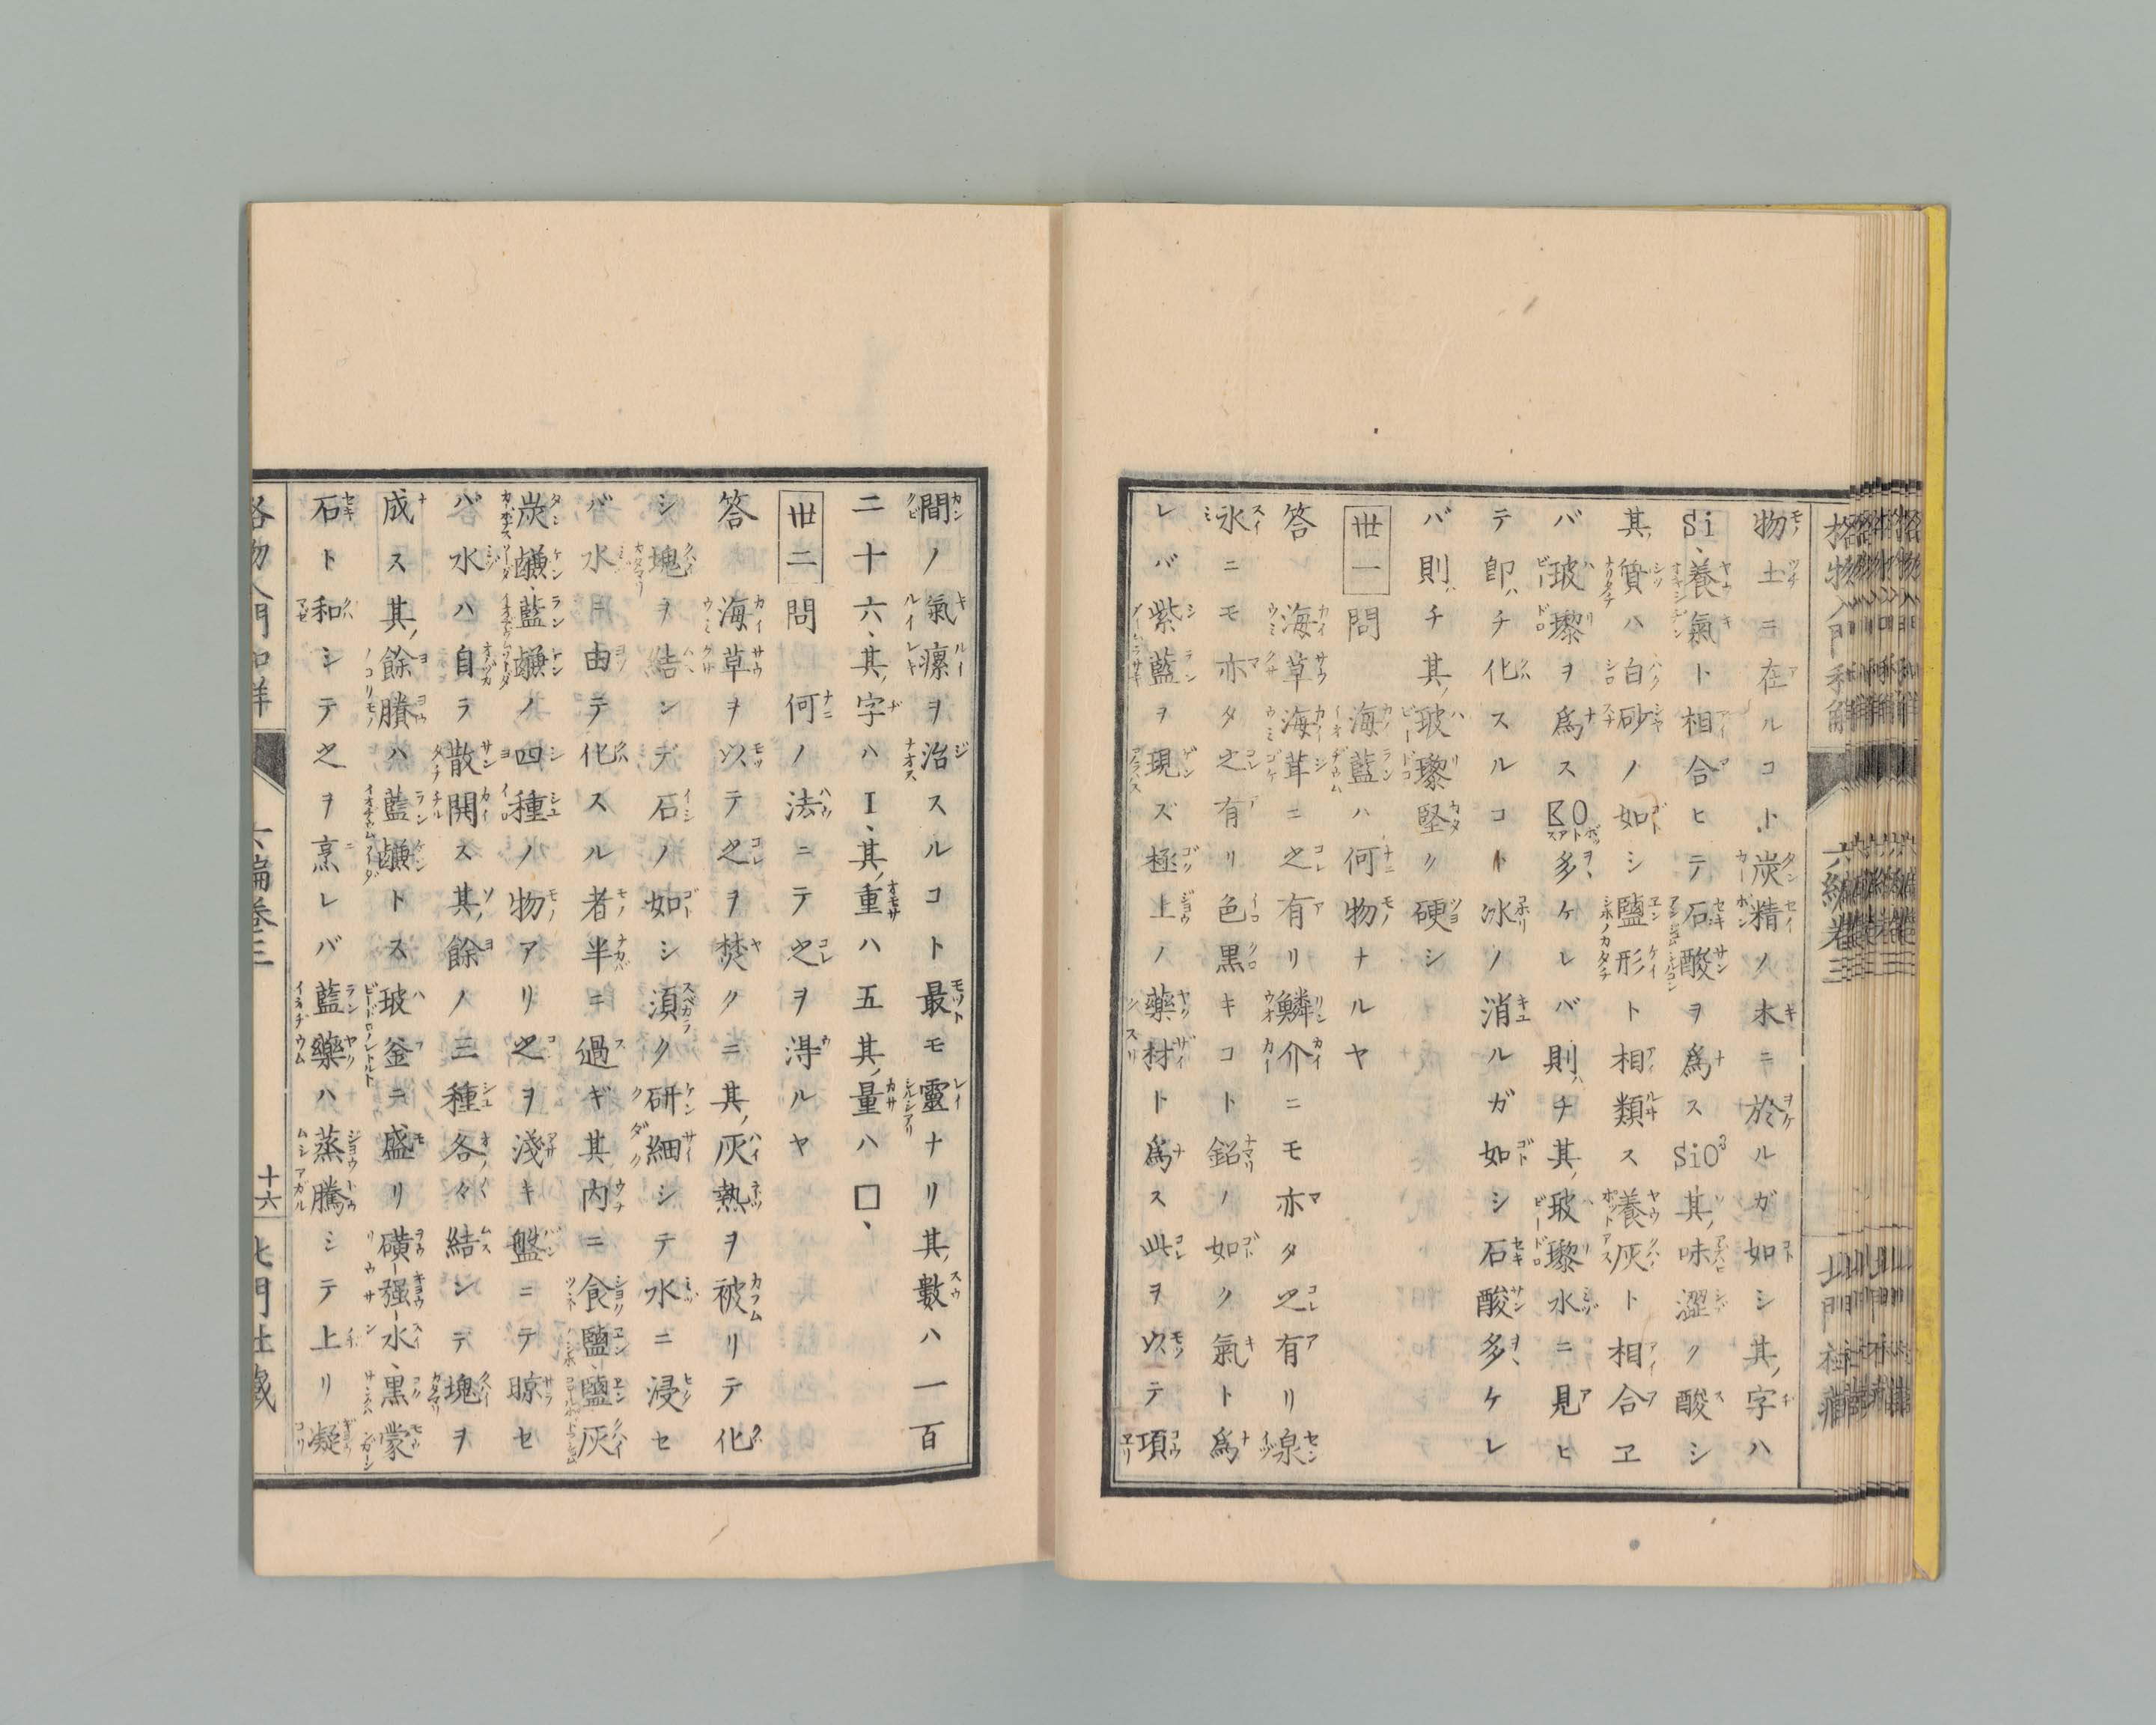 物土ニ在ルコト炭精ノ木ニ於ルガ如シ其字ハ
Si、養氣ト相合ヒテ石酸ヲ爲ス SiO³ 其味澀ク酸シ
其質ハ白砂ノ如シ鹽形ト相類ス養灰ト相合ヱ
バ玻瓈ヲ爲ス KO 多ケレバ則チ其玻瓈水ニ見ヒ
テ卽チ化スルコト氷ノ消ルガ如シ石酸多ケレ
バ則チ其玻瓈堅ク硬シ
丗一問 海藍ハ何物ナルヤ
答 海草海茸ニ之有リ鱗介ニモ亦タ之有リ泉
水ニモ亦タ之有リ色黒キコト鉛ノ如ク氣ト爲
レバ紫藍ヲ現ズ極上ノ藥材ト爲ス此ヲ以テ項
間ノ氣瘰ヲ治スルコト最モ靈ナリ其數ハ一百
二十六、其字ハI、其重ハ五其量ハ□、
丗二問 何ノ法ニテ之ヲ淂ルヤ
答 海草ヲ以テ之ヲ焚クニ其灰熱ヲ被リテ化
シ塊ヲ結ンデ石ノ如シ湏ク研細シテ水ニ浸セ
バ水ニ由テ化スル者半ニ過ギ其内ニ食鹽、鹽灰
炭鹻藍鹻ノ四種ノ物アリ之ヲ淺キ盤ニテ晾セ
バ水ハ自ラ散開ス其餘ノ三種各々結ンデ塊ヲ
成ス其餘賸ハ藍鹻トス玻釜ニ盛リ磺强水、黒蒙
石ト和シテ之ヲ烹レバ藍藥ハ蒸騰シテ上リ凝
格物入門和解 六編卷三 十六 北門社藏